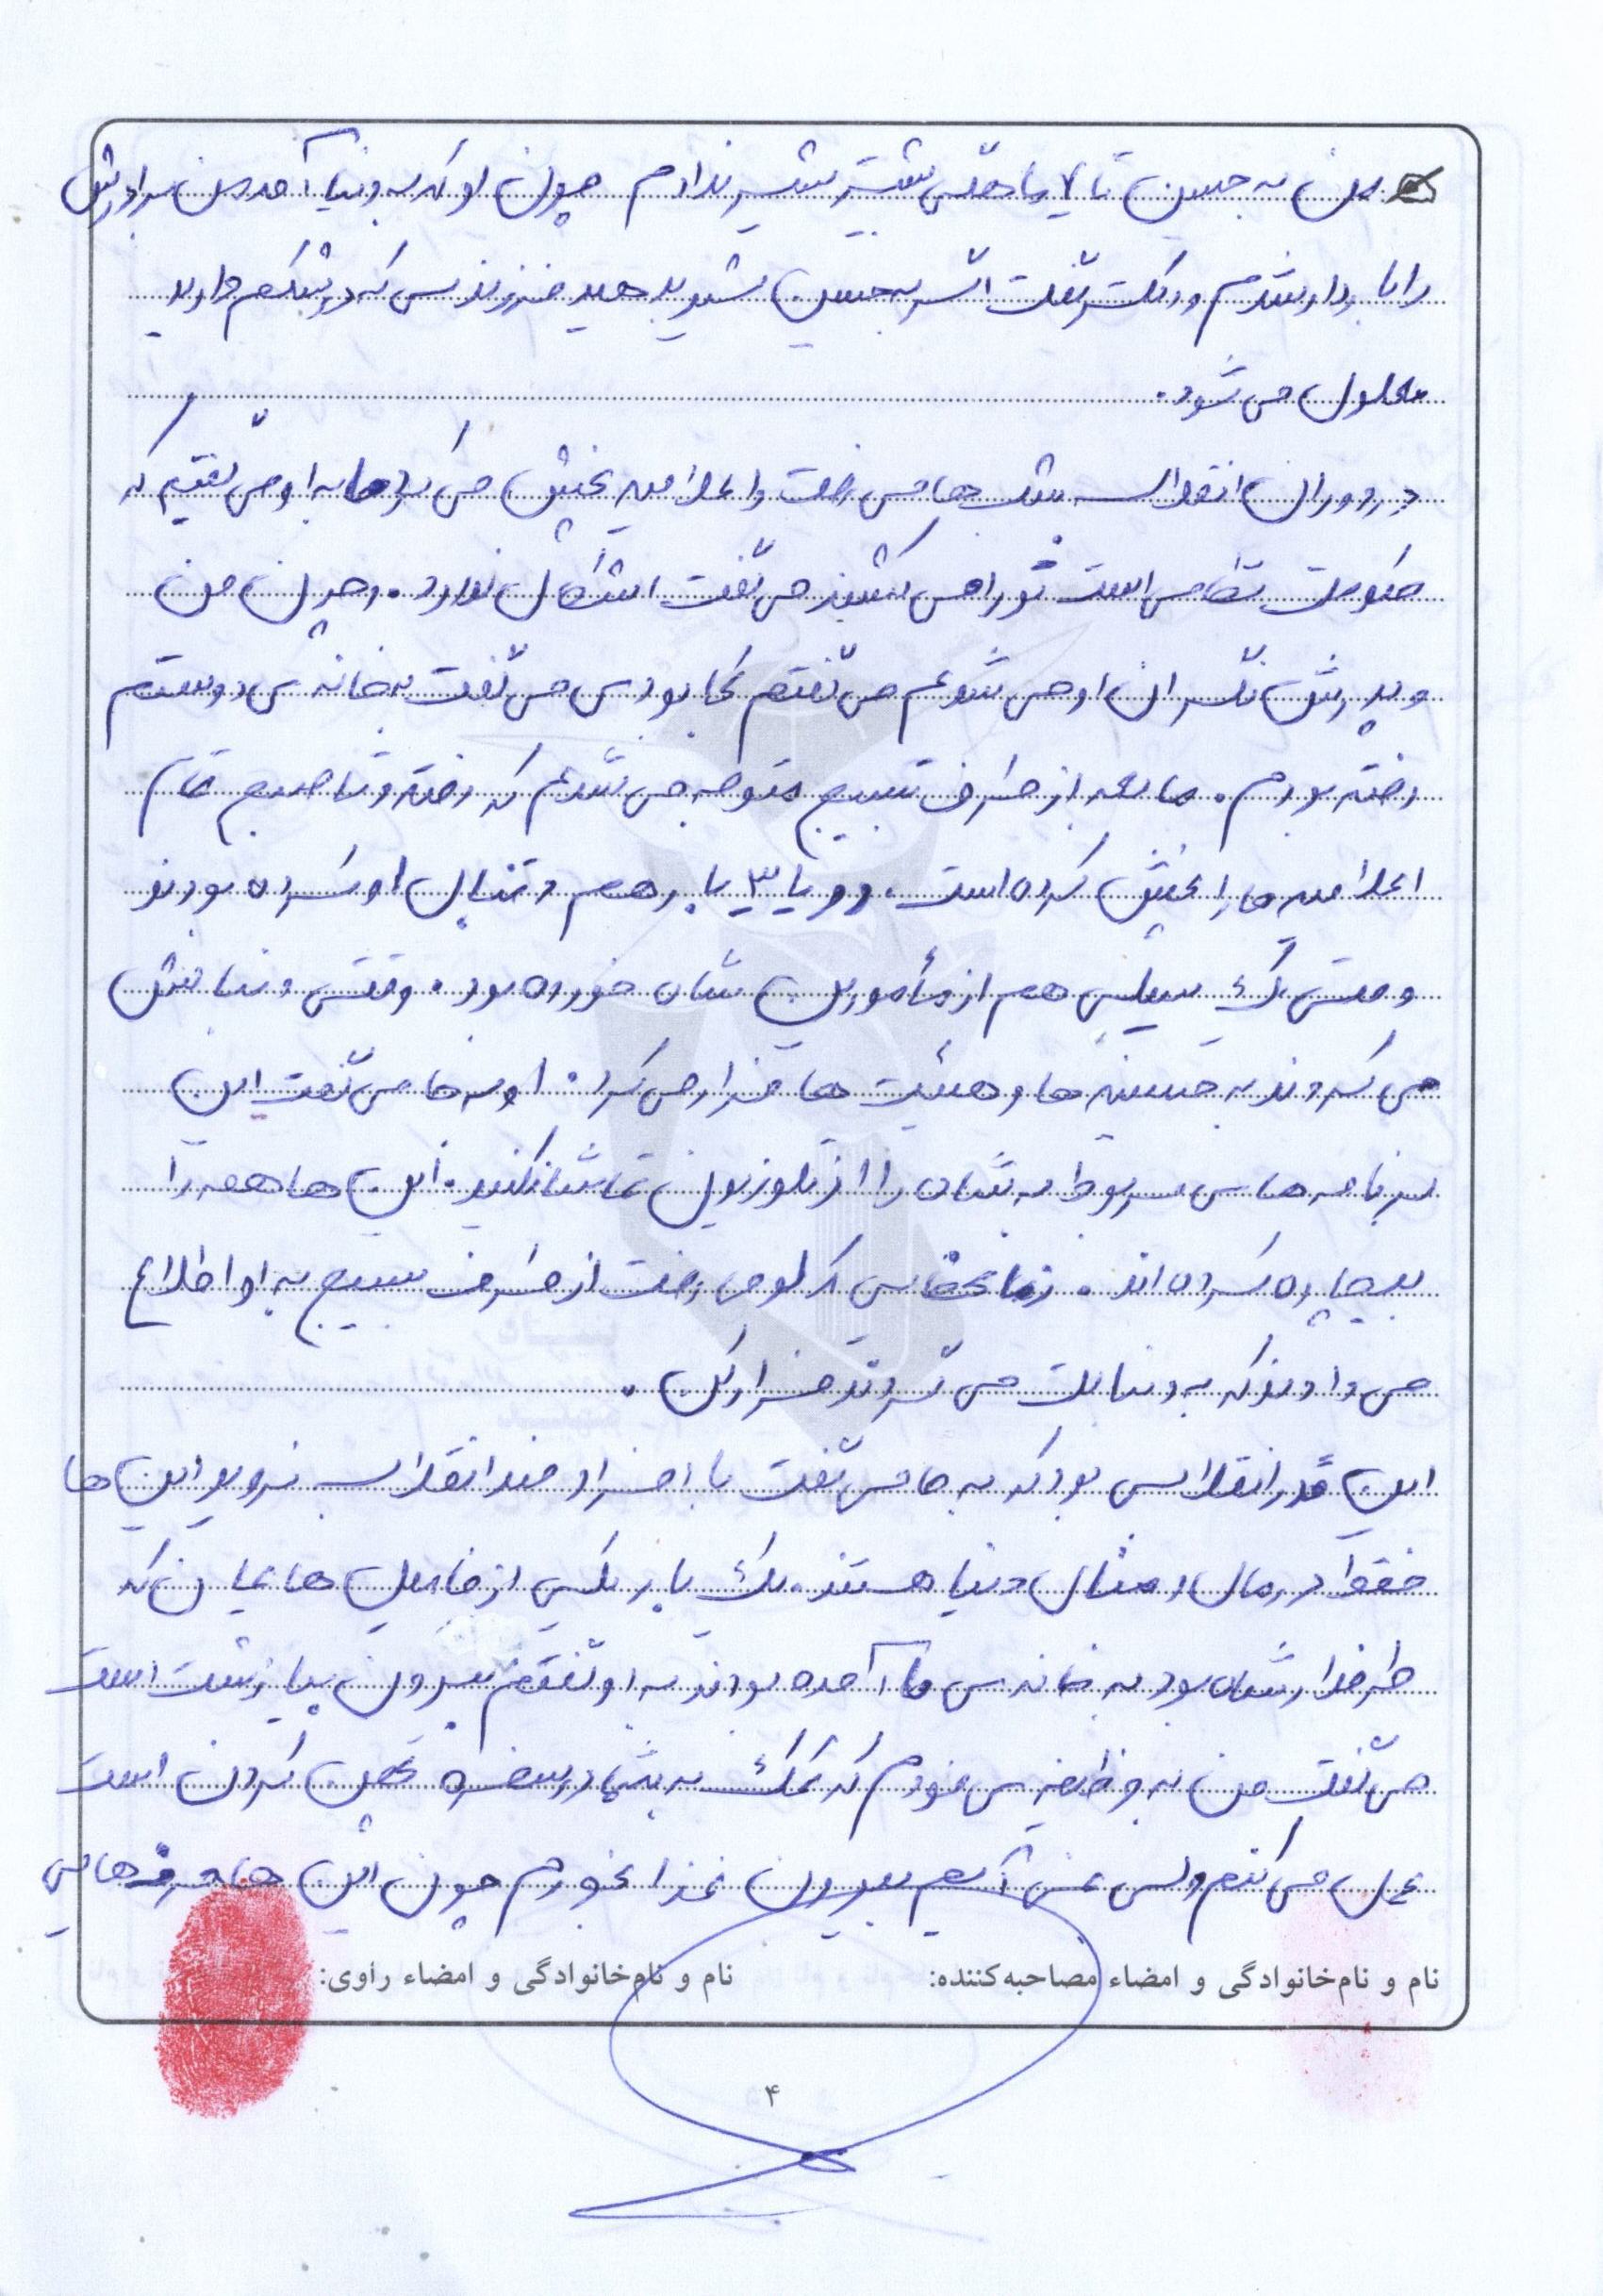 من به حسین تا ۷ ماهگی بیشتر شیر ندادم چون او که به دنیا آمد من برادرش
را باردار شدم و دکتر گفت اگر به حسین شیر بدهید فرزندی که در شکم دارید
معلول می شود.
در دوران انقلاب شب ها می رفت و اعلامیه پخش می کرد ما به او می گفتیم که
حکومت نظامی است تو را می کشند می گفت اشکال ندارد. و چون من
و پدرش نگران او می شدیم می گفتم کجا بودی می گفت به خانه ی دوستم
رفته بودم. ما بعد از طرف بسیج متوجه می شدیم که رفته و تا صبح تمام
اعلامیه ها را پخش کرده است. دو یا ۳ بار هم دنبال او کرده بودند
و حتی یک سیلی هم از مأمورین شان خورده بود. وقتی دنبالش
می کردند به حسینیه ها و هیئت ها فرار می کرد. او به ما می گفت این
برنامه های مربوط به شاه را از تلویزیون تماشا نکنید. این ها همه را
بیچاره کرده اند. زمانی که او می رفت از طرف بسیج به او اطلاع
می دادند که به دنبالت می گردند فرار کن.
این قدر انقلابی بود که به ما می گفت با افراد ضد انقلاب نروید این ها
فقط در مال و منال دنیا هستند. یک بار یکی از فامیل هایمان که
طرفدار شاه بود به خانه ی ما آمده بودند به او گفتم بیرون بیا زشت است
می گفت من به وظیفه ی خودم که کمک به شما در سفره پهن کردن است
عمل می کنم ولی نمی آیم بیرون غذا بخورم چون این ها حرف هایی
نام و نام‌خانوادگی و امضاء مصاحبه‌کننده:
نام و نام‌خانوادگی و امضاء راوی:
۴